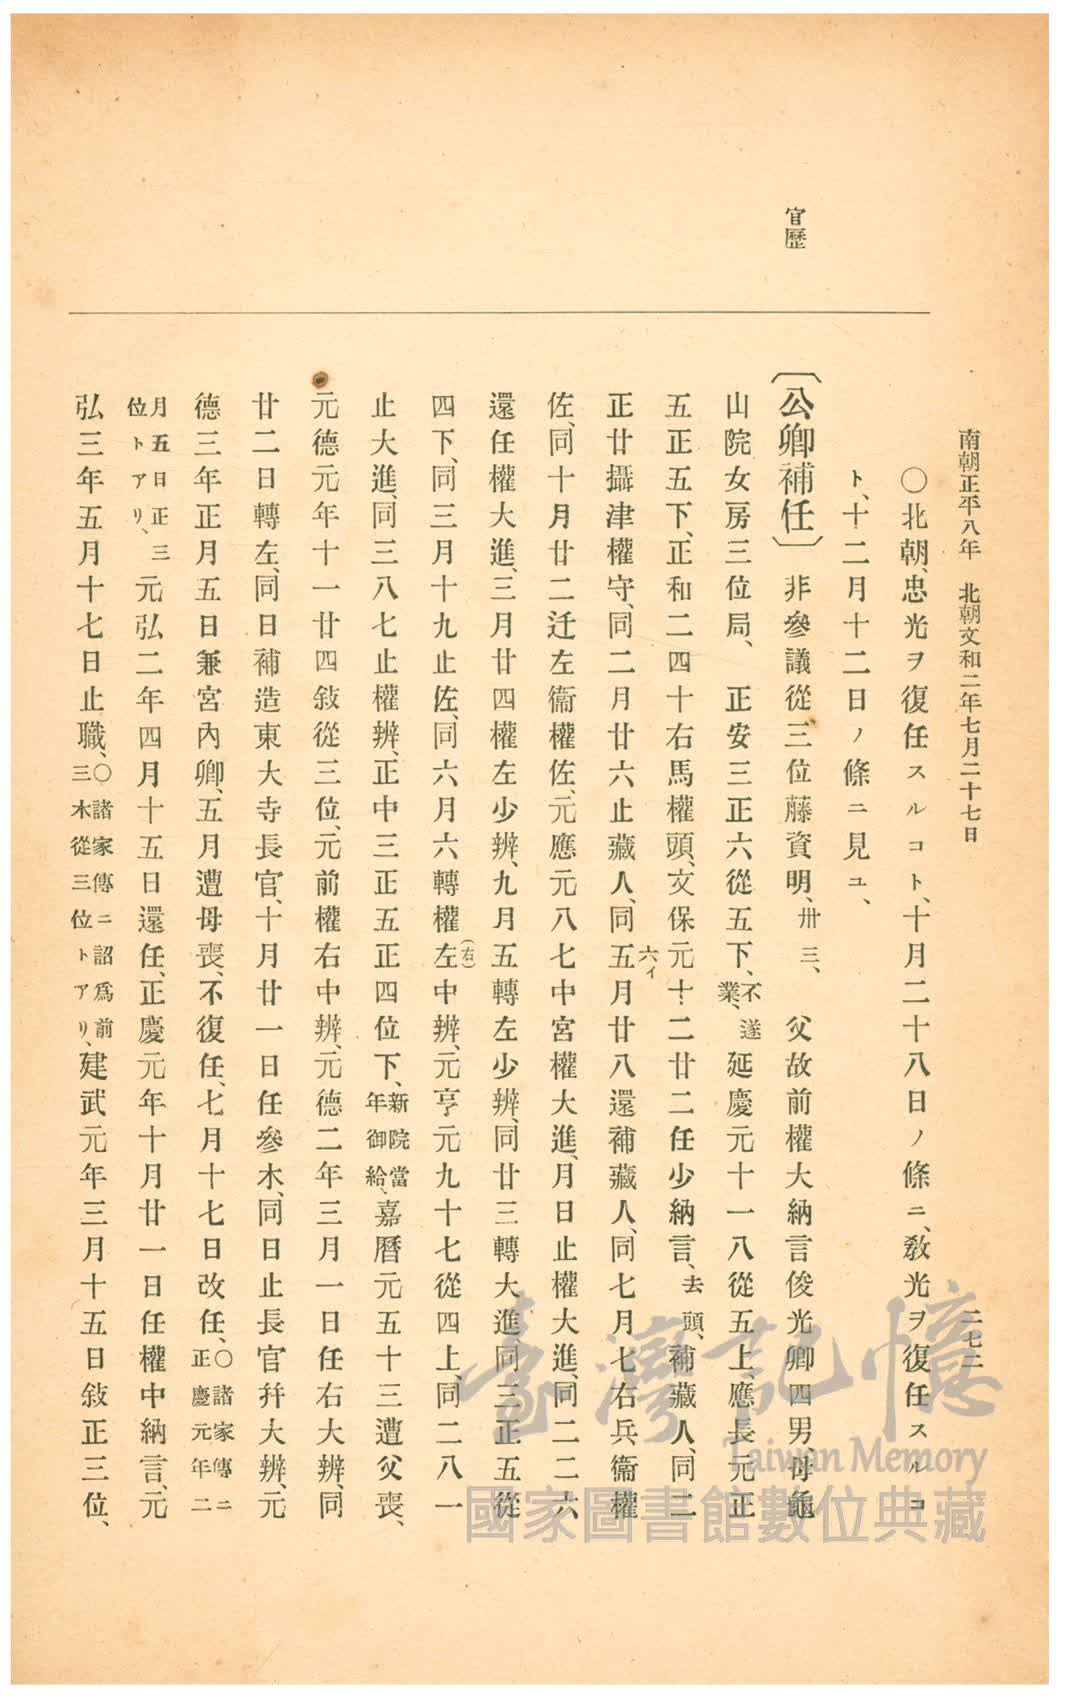 南朝正平八年 北朝文和二年七月二十七日
二七二
官歷
〇北朝、忠光ヲ復任スルコト、十月二十八日ノ條ニ、敎光ヲ復任スルコ
ト、十二月十二日ノ條ニ見ユ、
〔公卿補任〕 非參議從三位藤資明、卅三、 父故前權大納言俊光卿四男、母龜
山院女房三位局、 正安三正六從五下、不遂業、延慶元十一八從五上、應長元正
五正五下、正和二四十右馬權頭、文保元十二廿二任少納言、去頭、補藏人、同二
六イ
正廿攝津權守、同二月廿六止藏人、同五月廿八還補藏人、同七月七右兵衞權
佐、同十月廿二迁左衞權佐、元應元八七中宮權大進、月日止權大進、同二二六
還任權大進、三月廿四權左少辨、九月五轉左少辨、同廿三轉大進同三正五從
四下、同三月十九止佐、同六月六轉權左(右)中辨、元亨元九十七從四上、同二八一
止大進、同三八七止權辨、正中三正五正四位下、新院當年御給、嘉曆元五十三遭父喪、
元德元年十一廿四敍從三位、元前權右中辨、元德二年三月一日任右大辨、同
廿二日轉左、同日補造東大寺長官、十月廿一日任參木、同日止長官幷大辨、元
德三年正月五日兼宮內卿、五月遭母喪、不復任、七月十七日改任、〇諸家傳ニ正慶元年二
月五日正三位トアリ、元弘二年四月十五日還任、正慶元年十月廿一日任權中納言、元
弘三年五月十七日止職、〇諸家傳ニ詔爲前三木從三位トアリ、建武元年三月十五日敍正三位、
臺灣記憶
Taiwan Memory
國家圖書館數位典藏